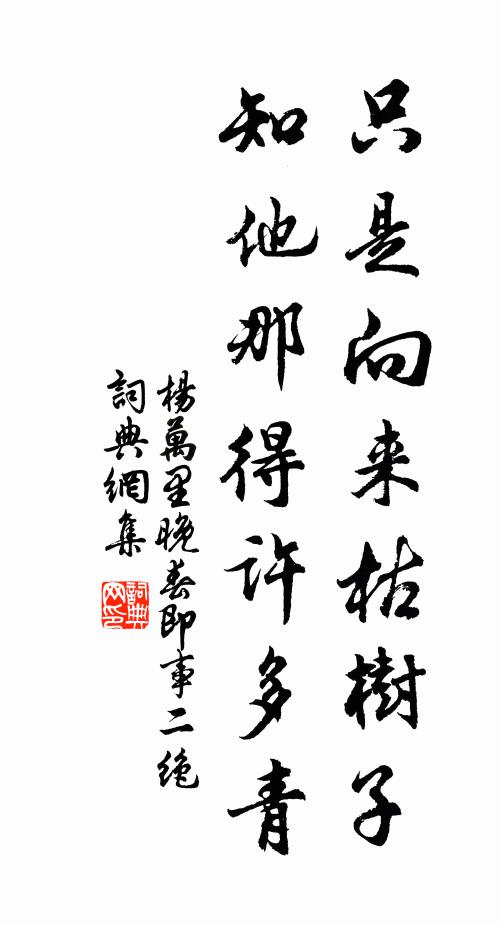 只是向来枯樹子
知他那得许多青
楊萬里晚春即事二绝
詞典網集
詞典网印